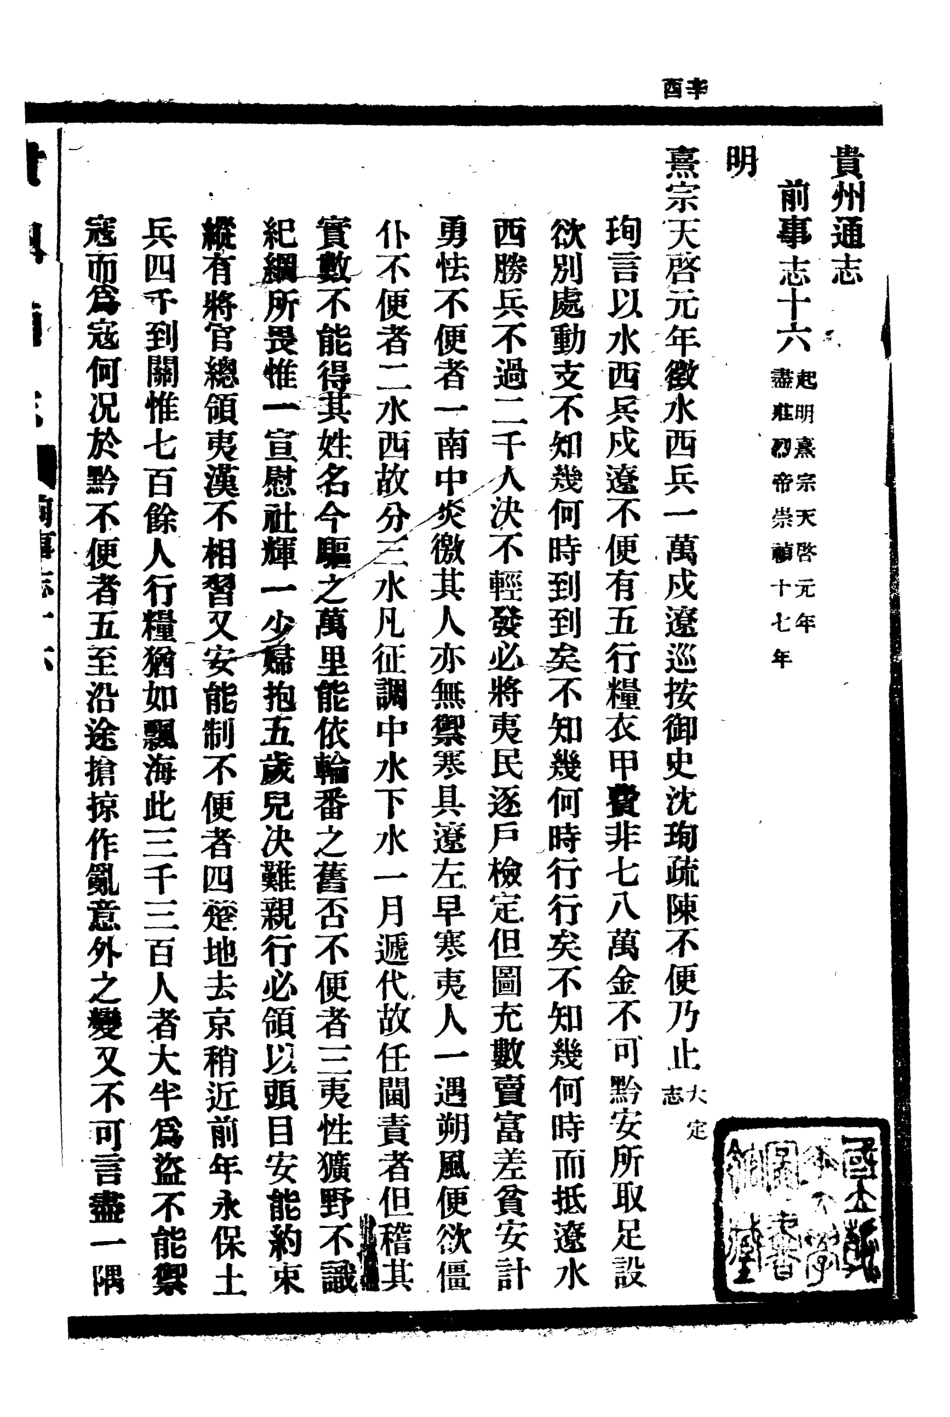 辛酉
貴州通志
前事志十六 起明熹宗天啓元年 盡莊烈帝崇禎十七年
明
熹宗天啓元年徵水西兵一萬戍遼巡按御史沈珣疏陳不便乃止 大定志
珣言以水西兵戍遼不便有五行糧衣甲費非七八萬金不可黔安所取足設
欲別處動支不知幾何時到到矣不知幾何時行行矣不知幾何時而抵遼水
西勝兵不過二千人決不輕發必將夷民逐戶檢定但圖充數賣富差貧安計
勇怯不便者一南中炎徼其人亦無禦寒具遼左早寒夷人一遇朔風便欲僵
仆不便者二水西故分三水凡征調中水下水一月遞代故任閫責者但稽其
實數不能得其姓名今驅之萬里能依輪番之舊否不便者三夷性獷野不識
紀綱所畏惟一宣慰社輝一少婦抱五歲兒決難親行必領以頭目安能約束
縱有將官總領夷漢不相習又安能制不便者四楚地去京稍近前年永保土
兵四千到關惟七百餘人行糧猶如飄海此三千三百人者大半爲盜不能禦
寇而爲寇何况於黔不便者五至沿途搶掠作亂意外之變又不可言盡一隅
貴州通志 前事志十六
國立
圖書